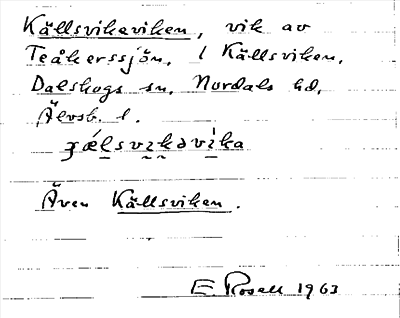 Källsvikeviken, vik av
Teåkerssjön, l Källsviken,
Dalskogs sn, Nordals hd,
Älvsb. l.
ʒǽlsvɪkəvìka
Även Källsviken.
E Rosell 1963